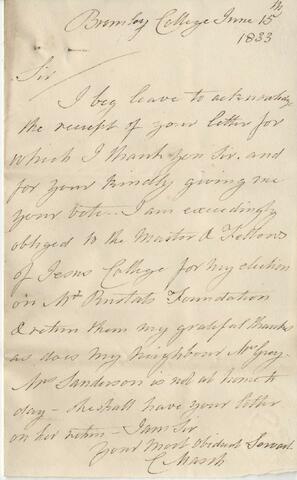 Bromley College June 15th
1833
Sir
I beg leave to acknowledge
the receipt of your letter for
which I thank you Sir, and
for your kindly giving me
your Vote - I am exceedingly
obliged to the Master & Fellows
of Jesus College for my election
on Mr Rustats Foundation
& return them my grateful thanks
as does my Neighbour Mrs Grey -
Mrs Sanderson is not at home to
day - she shall have your letter
on her return - I am Sir
your Most Obedient Servant
C Marsh